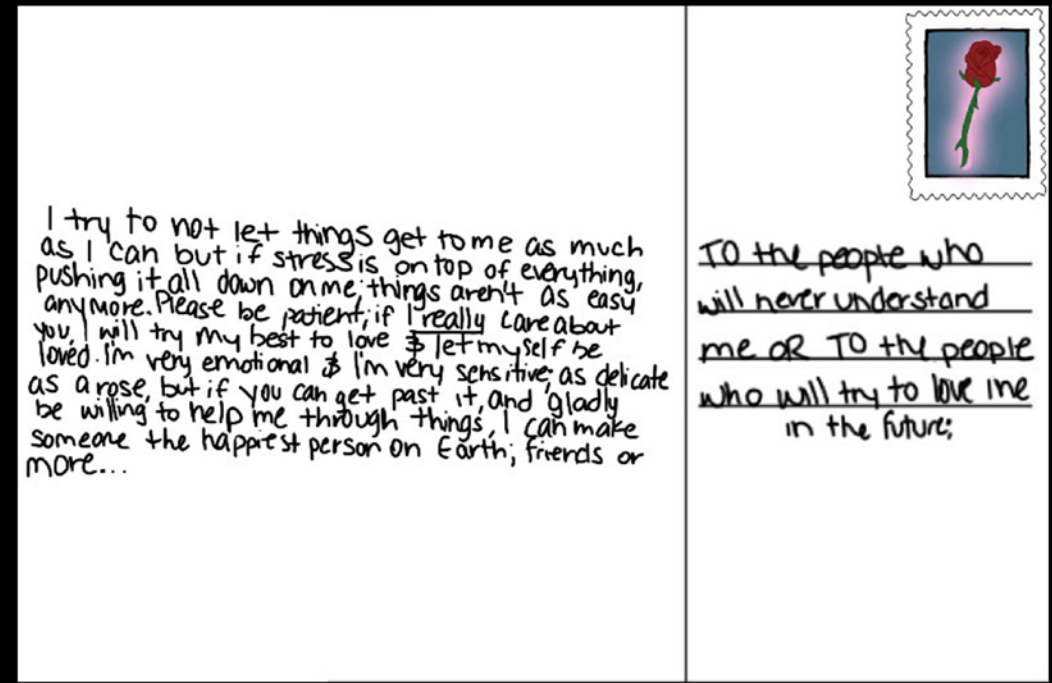 I try to not let things get to me as much
as I can but if stress is on top of everything,
pushing it all down on me; things aren't as easy
anymore. Please be patient; if I really care about
you, I will try my best to love & let myself be
loved. I'm very emotional & I'm very sensitive; as delicate
as a rose, but if you can get past it, and gladly
be willing to help me through things, I can make
someone the happiest person on Earth; friends or
more...
TO the people who
will never understand
me OR TO the people
who will try to love me
in the future;